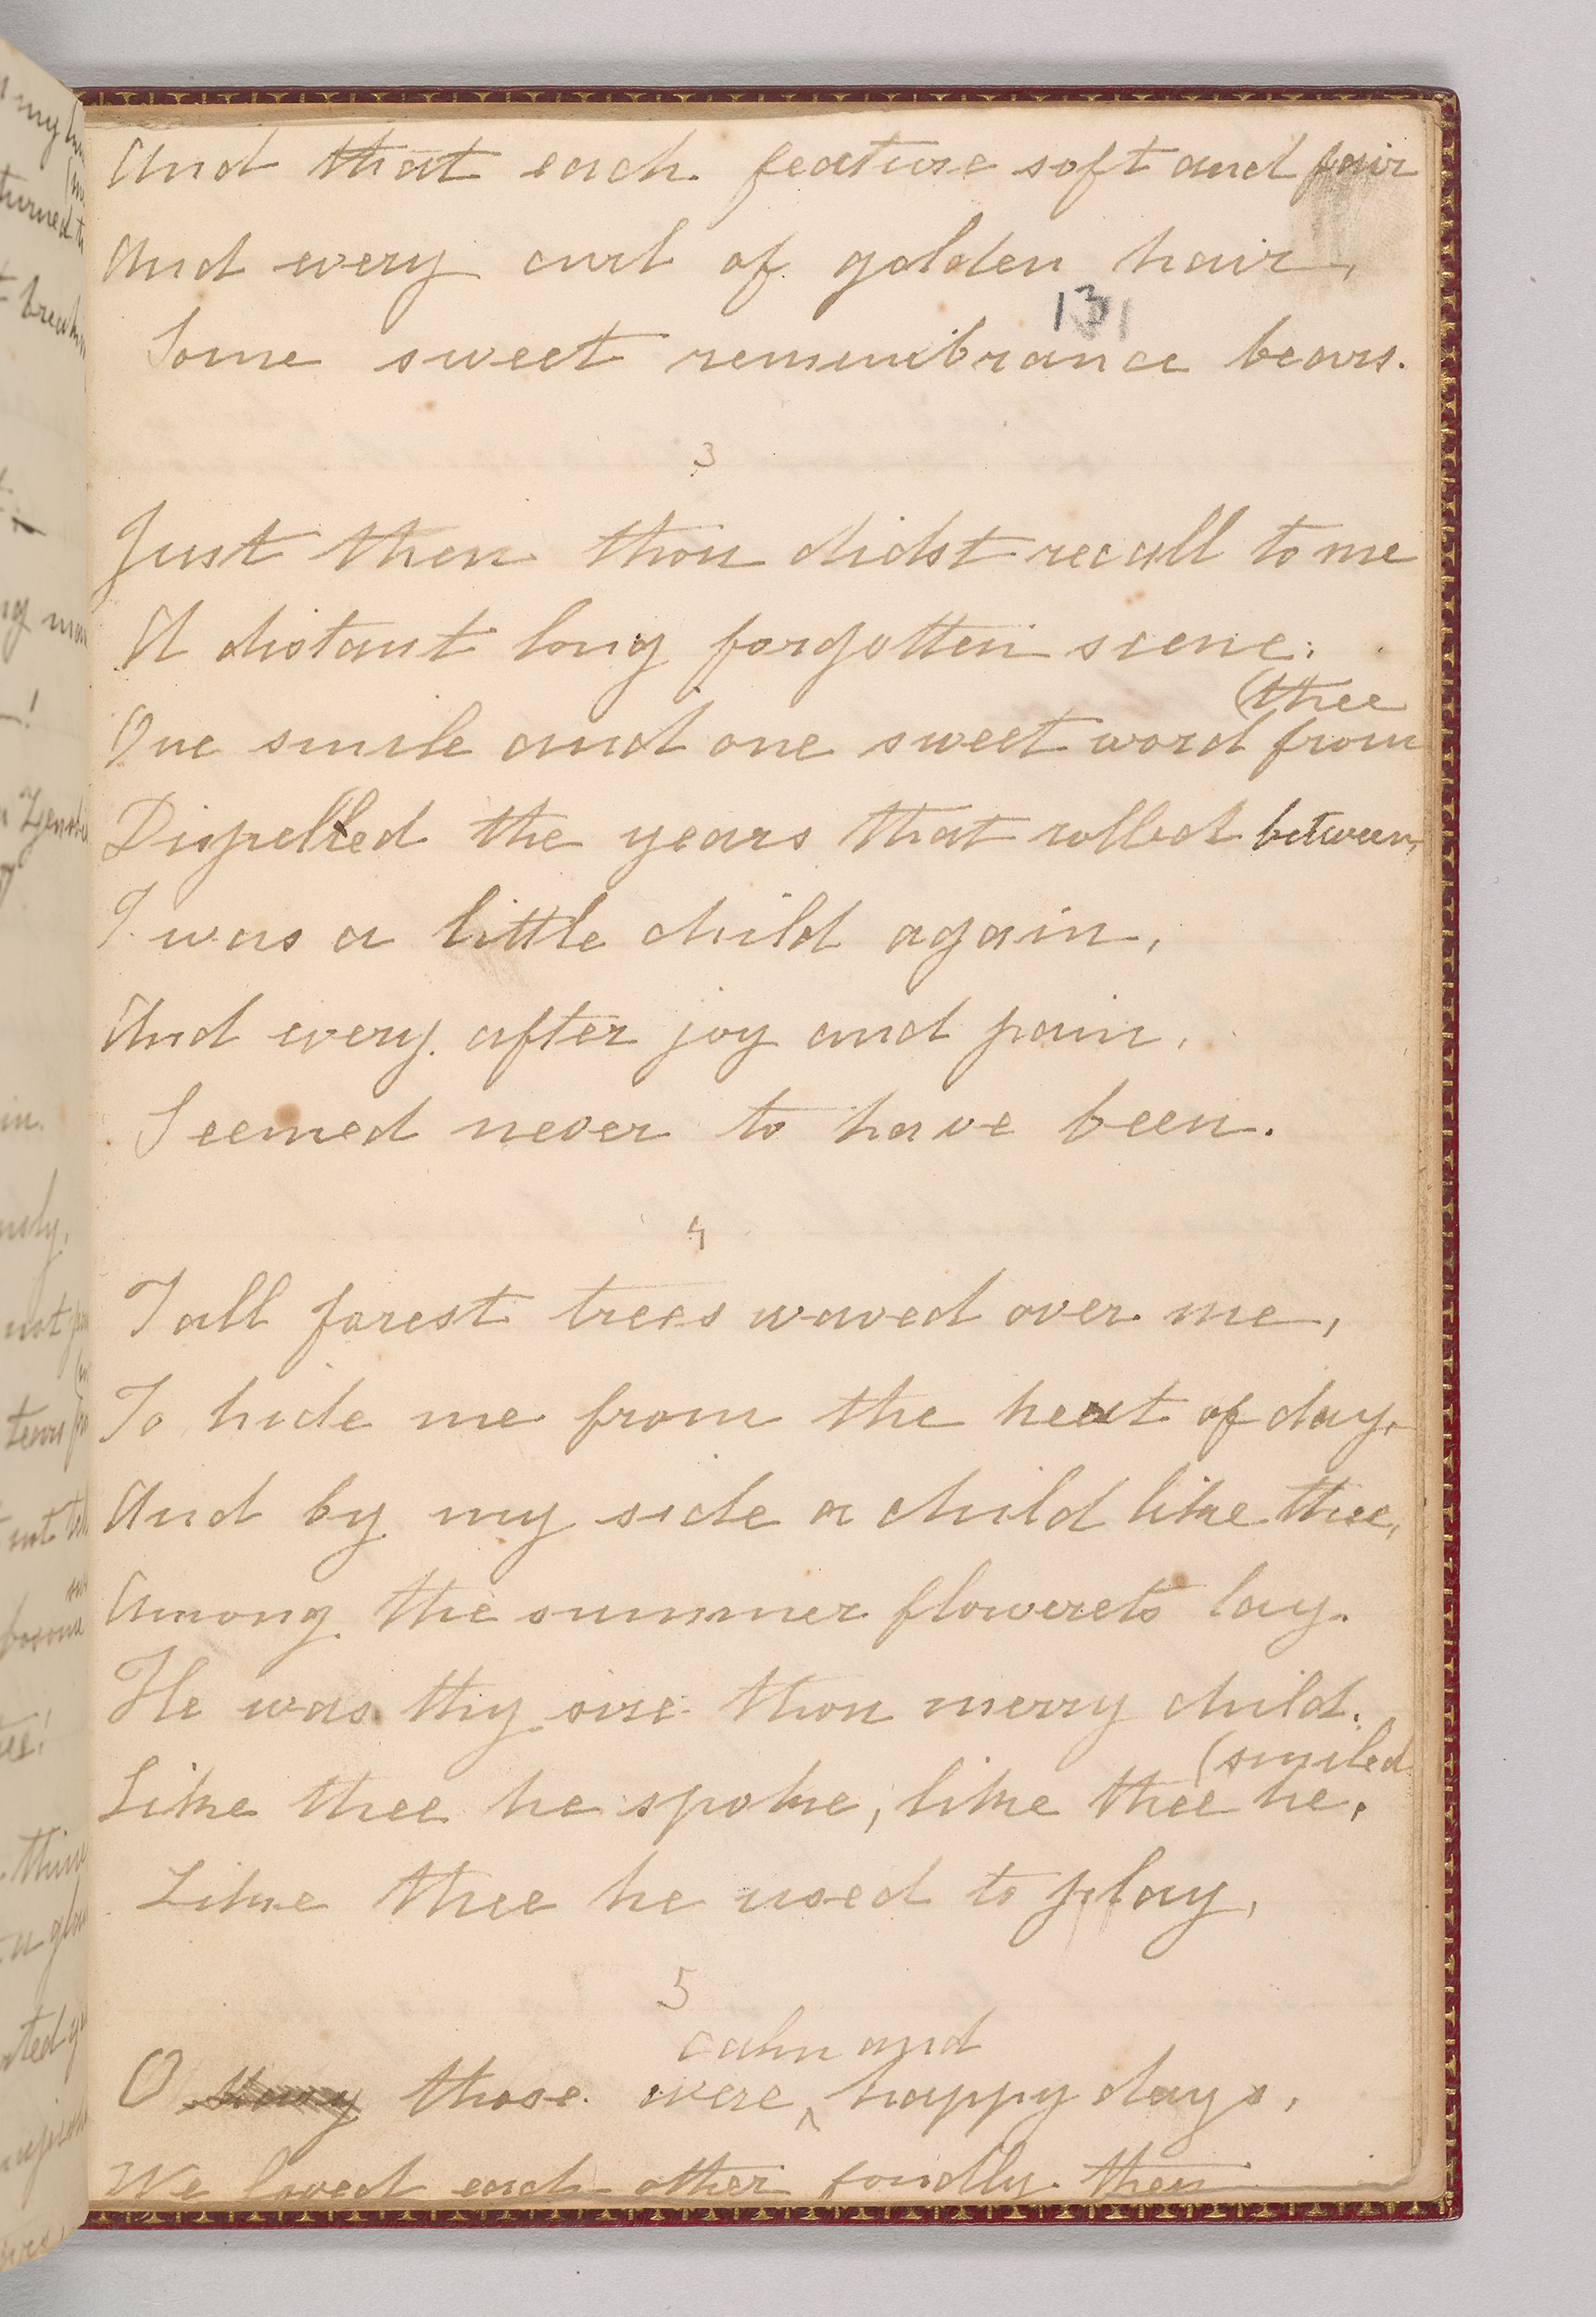 And that each feature soft and fair
And every curl of golden hair,
131
Some sweet remembrance bears.
3
Just then thou didst recall to me
A distant long forgotten scene.
(thee
One smile and one sweet word from
Dispelled the years that rolled between,
I was a little child again,
And every after joy and pain,
Seemed never to have been.
4
Tall forest trees waved over me,
To hide me from the heat of day,
And by my side a child like thee,
Among the summer flowerets lay.
He was thy sire thou merry child.
(smiled
Like thee he spoke, like thee he,
Like thee he used to play,
5
calm and
O those were ^ happy days,
We loved each other fondly then